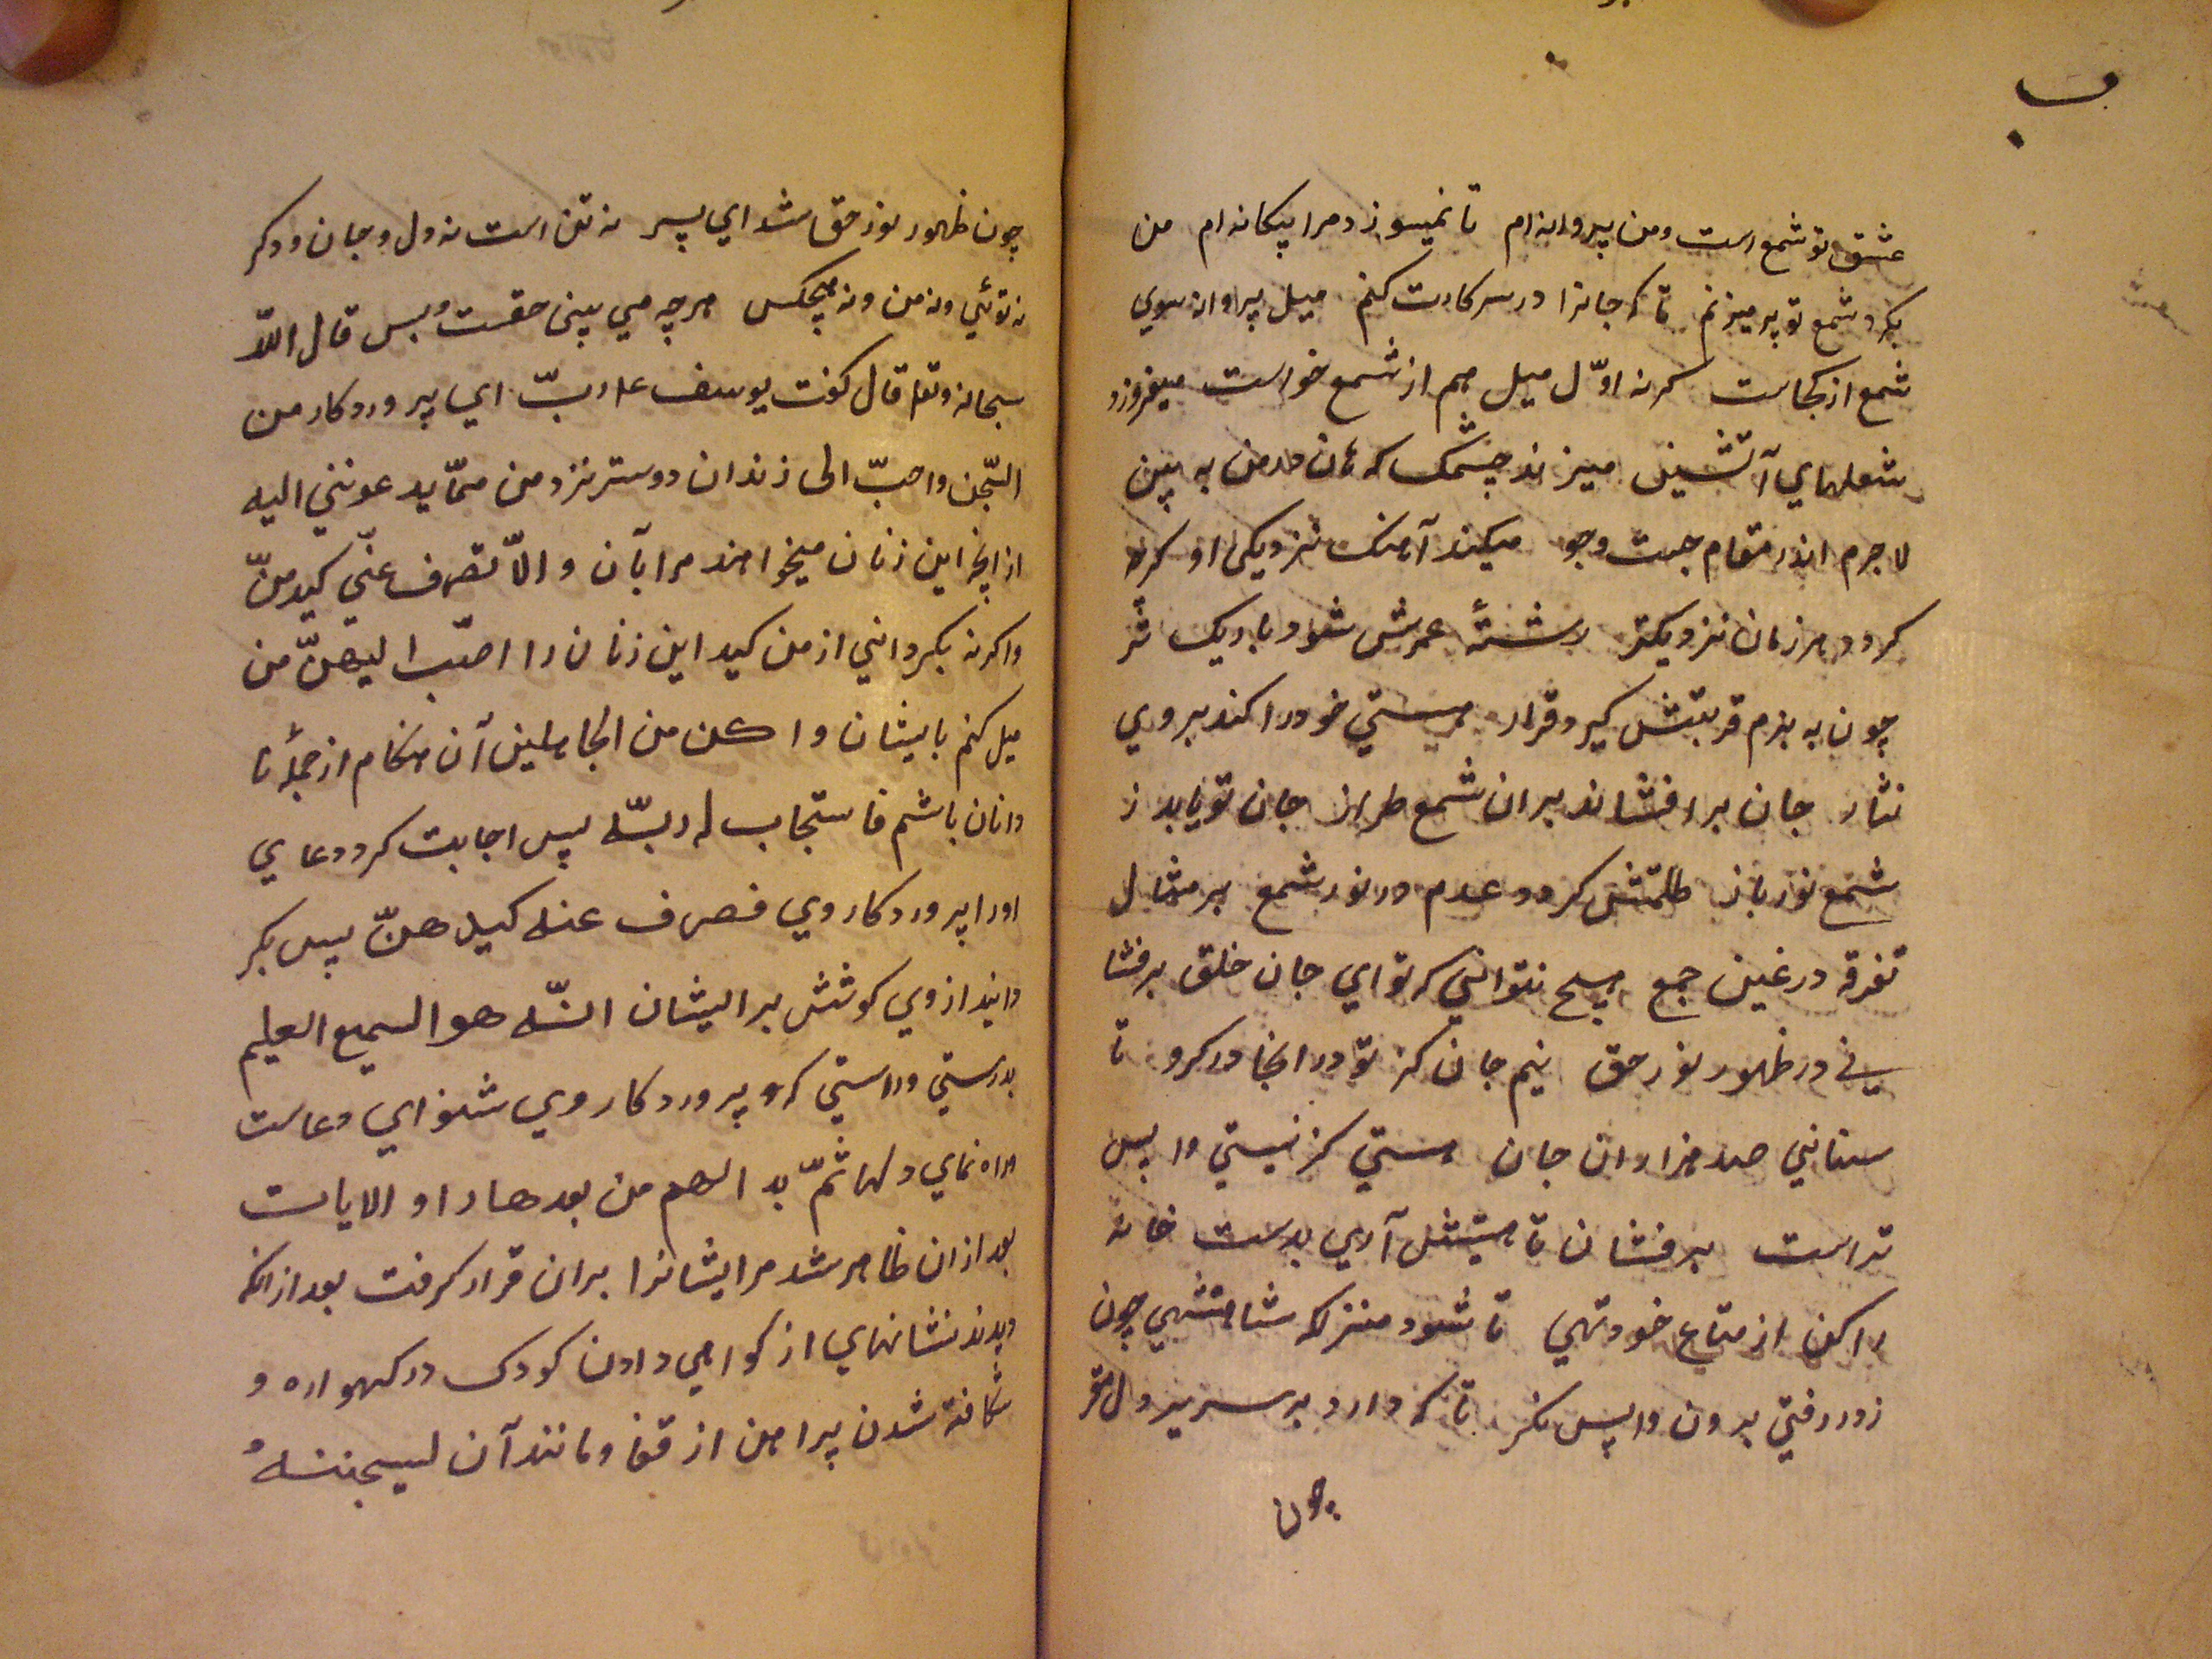 ب
عشق تو شمع است و من پروانه ام تا نمیسوزد مرا بیکانه ام من
بکرد شمع تو پر میزنم تا که جانرا در سر کارت کنم میل پروانه سوی
شمع از کجاست کرنه اوّل میل هم از شمع خواست میفروزد
شعلهای آتشین میزند چشمک که هان در من به بین
لاجرم اندر مقام جست وجو میکند آهنک نزدیکی او کرچه
کردد هر زمان نزدیکتر رشتهٔ عمرش شود باریک تر
چون به بزم قربتش کیرد قرار هستی خود را کند بروی
نثار جان برافشاند بران شمع طراز جان نو یابد ز
شمع نور باز ظلمتش کردد عدم در نور شمع بر مثال
تفرقه در عین جمع هیچ نتوانی که تو ای جان خلق برفشا
نی در ظهور نور حق نیم جان کز تو در انجا در کرو تا
ستانی صد هزاران جان هستی کز نیستی واپس
تراست برفشان تا هستیش آری بدست خانه
را کن از متاع خود تهی تا شود منزلکه شاهنشهی چون
زور رفتی برون واپس نکر تا که دارد بر سریر دل مقر
چون
چون ظهور نور حق شد ای پسر نه تن است نه دل و جان و دکر
نه توئی و نه من و نه هیچکس هرچه می بینی حقست و بس قال اللّه
سبحانه وتعا قال کفت یوسف عا ربّ ای پروردکار من
السّجن واحبّ الی زندان دوستر نزد من ممّا یدعوننی الیه
از آنچه این زنان میخواهند مرا بآن و الّا تصرف عنّی کیدهنّ
واکرنه بکردانی از من کید این زنان را اصب الیهنّ من
میل کنم بایشان و اکن من الجاهلین آن هنکام از جملهٔ نا
دانان باشم فاستجاب له ربّه پس اجابت کرد دعای
اورا پروردکار وی فصرف عنه کیدهنّ پس بکر
دانید از وی کوشش بر ایشان انّه هو السمیع العلیم
بدرستی و راستی که پروردکار وی شنوای دعاست
راه نمای دلها ثمّ بدا لهم من بعد ما راو الایات
بعد ازان ظاهر شد مر ایشانرا بران قرار کرفت بعد ازانکه
دیدند نشانهای از کواهی دادن کودک در کهواره و
شکافته شدن پیراهن از قفا و مانند آن لیسجننه